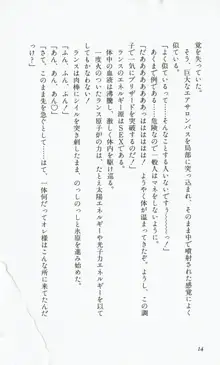 覚を失っていた。
　そう、巨大なエアサロンパスを局部に突っ込まれ、そのまま中で噴射された感覚によく
似ている。
「よく似ているって……そんなことする人いないですぅ……っ!」
「……危険なので一般人はマネをしないように!」
「だああああああああああっ! ようやく体が温まってきたぞ。ようし、この調
子で一気にブリザードを突破するのだ!」
　ランスのエネルギー源はSEXである。
　体中の血液は沸騰し、激しく体内を駆け巡る。
　一度火のついたランス原子炉の力は、たとえ太陽エネルギーや光子力エネルギーを以て
しても敵わない!
「ふん、ふん、ふん!」
「あん、あん、あん♡」
　ランスは肉棒にシィルを突き刺したまま、のっしのっしと氷原を進み始めた。
「さて、このまま先を急ぐとして……はて、一体何だってオレ様はこんな所に来てたんだ
っけ?」
14